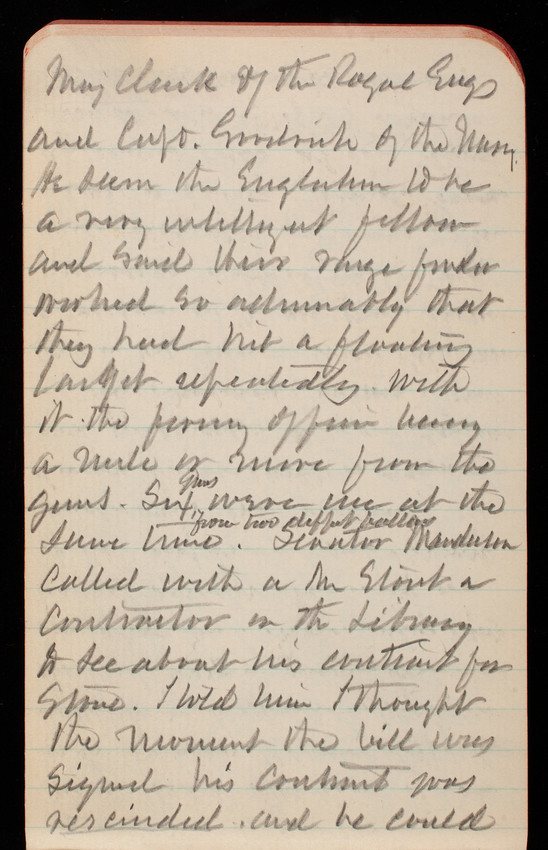 Maj Clark of the Royal Engs
and Capt. Goodrich of the Navy.
He seem the Englishman to be
a very intelligent fellow
and said their range finder
worked so admirably that
they had hit a floating
target repeatedly with
it. the firing officer being
a mile or more from the
guns. Six guns were used at the
same time. from two diffent
Senator Manderson
called with a Mr Stout a
Contractor on the Library
to see about his contract for
Stone. I told him I thought
the moment the bill was
signed his contract was
rescinded. and he could